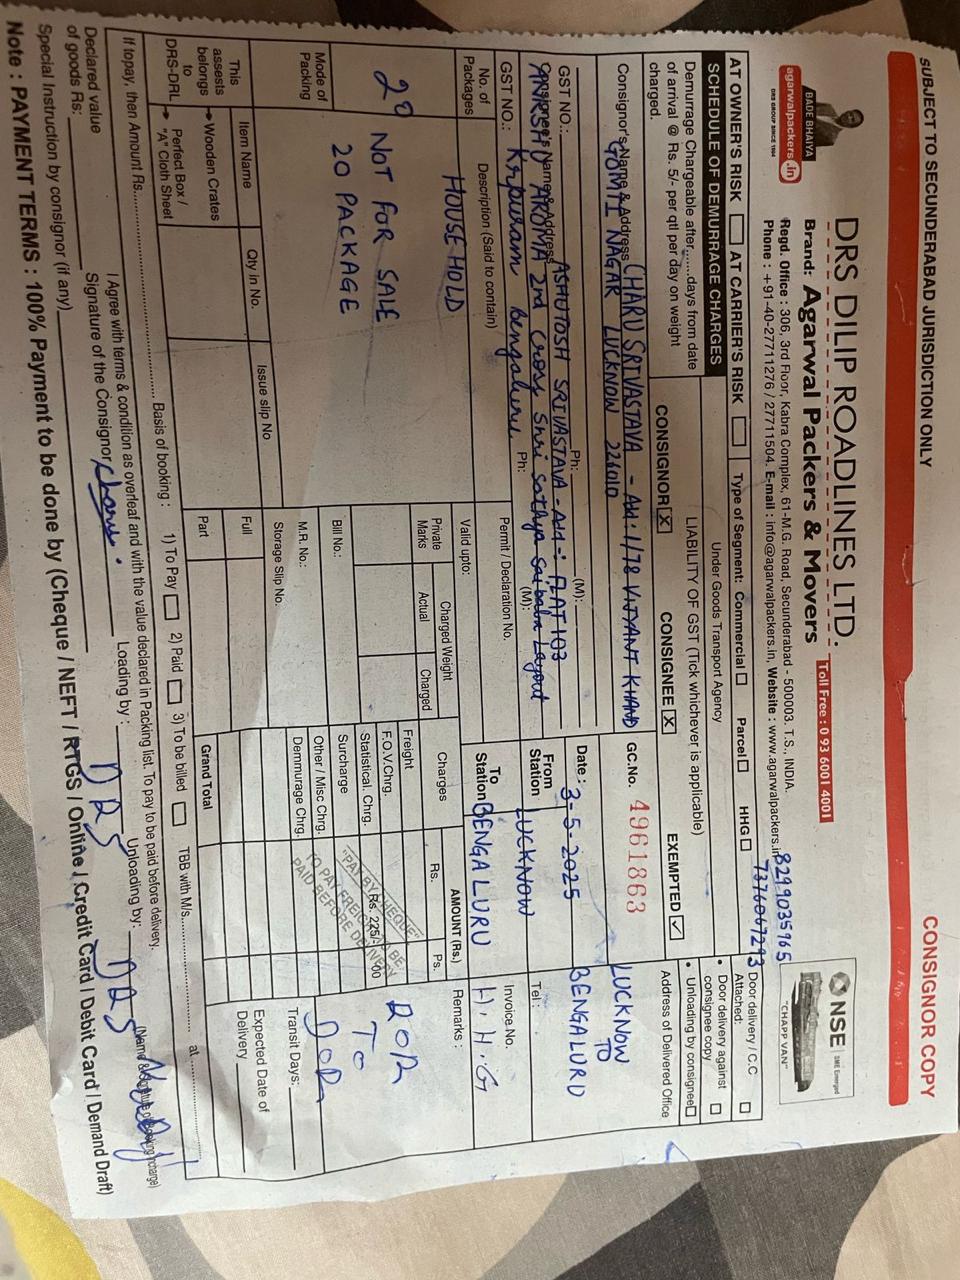 SUBJECT TO SECUNDERABAD JURISDICTION ONLY
CONSIGNOR COPY
BADE BHAIYA
agarwalpackers.in
DRS GROUP SINCE 1984
DRS DILIP ROADLINES LTD.
Brand: Agarwal Packers & Movers
Toll Free : 0 93 6001 4001
Regd. Office : 306, 3rd Floor, Kabra Complex, 61-M.G. Road, Secunderabad - 500003. T.S., INDIA.
Phone : +91-40-27711276 / 27711504. E-mail : info@agarwalpackers.in, Website : www.agarwalpackers.in
8299035965
7376067293
NSE
SME Emerge
"CHAPP VAN"
AT OWNER'S RISK
AT CARRIER'S RISK
Type of Segment: Commercial
Parcel
HHG
Door delivery / C.C Attached:
Door delivery against consignee copy
Unloading by consignee
SCHEDULE OF DEMURRAGE CHARGES
Under Goods Transport Agency
Demurrage Chargeable after.......days from date
of arrival @ Rs. 5/- per qtl per day on weight
charged.
LIABILITY OF GST (Tick whichever is applicable)
CONSIGNOR X
CONSIGNEE X
EXEMPTED ✓
Address of Delivered Office
Consignor's Name & Address CHARU SRIVASTAVA - Add: 1/78 VIJYANT KHAND
GOMTI NAGAR LUCKNOW 226010
GC.No. 4961863
LUCKNOW
TO
BENGALURU
GST NO.:
Ph:
(M):
Date : 3-5-2025
Consignee's Name & Address ASHUTOSH SRIVASTAVA - Add - : FLAT 103
AROMA 2nd Cross Shri Sathya Sai baba Layout
(M):
From Station LUCKNOW
Tel :
GST NO.: Krpuram Bengaluru
Ph:
Permit / Declaration No.
To Station BENGALURU
Invoice No.
H.H.G
No. of Packages
Description (Said to contain)
Valid upto:
Private Marks
Charged Weight
Actual
Charged
Charges
AMOUNT (Rs.)
Rs.
Ps.
Remarks :
DOR
TO
DOR
20
HOUSEHOLD
NOT FOR SALE
20 PACKAGE
Freight
F.O.V.Chrg.
Statistical. Chrg.
Surcharge
Other / Misc Chrg.
Demmurage Chrg.
Rs. 225/-
00
"PAY BY CHEQUE"
TO PAY FREIGHT TO BE
PAID BEFORE DELIVERY
Bill No.:
M.R. No.:
Storage Slip No.
Transit Days:
Mode of Packing
This assests belongs to DRS-DRL
Item Name
Qty in No.
Issue slip No
Wooden Crates
Perfect Box / "A" Cloth Sheet
Full
Part
Grand Total
Expected Date of Delivery
Basis of booking : 1) To Pay 2) Paid 3) To be billed TBB with M/s.................... at
If topay, then Amount Rs.
I Agree with terms & condition as overleaf and with the value declared in Packing list. To pay to be paid before delivery.
Declared value of goods Rs:
Signature of the Consignor Charu
Loading by : DRS
Unloading by: DRS
Special Instruction by consignor (if any)
Note : PAYMENT TERMS : 100% Payment to be done by (Cheque / NEFT / RTGS / Online / Credit Card / Debit Card / Demand Draft)